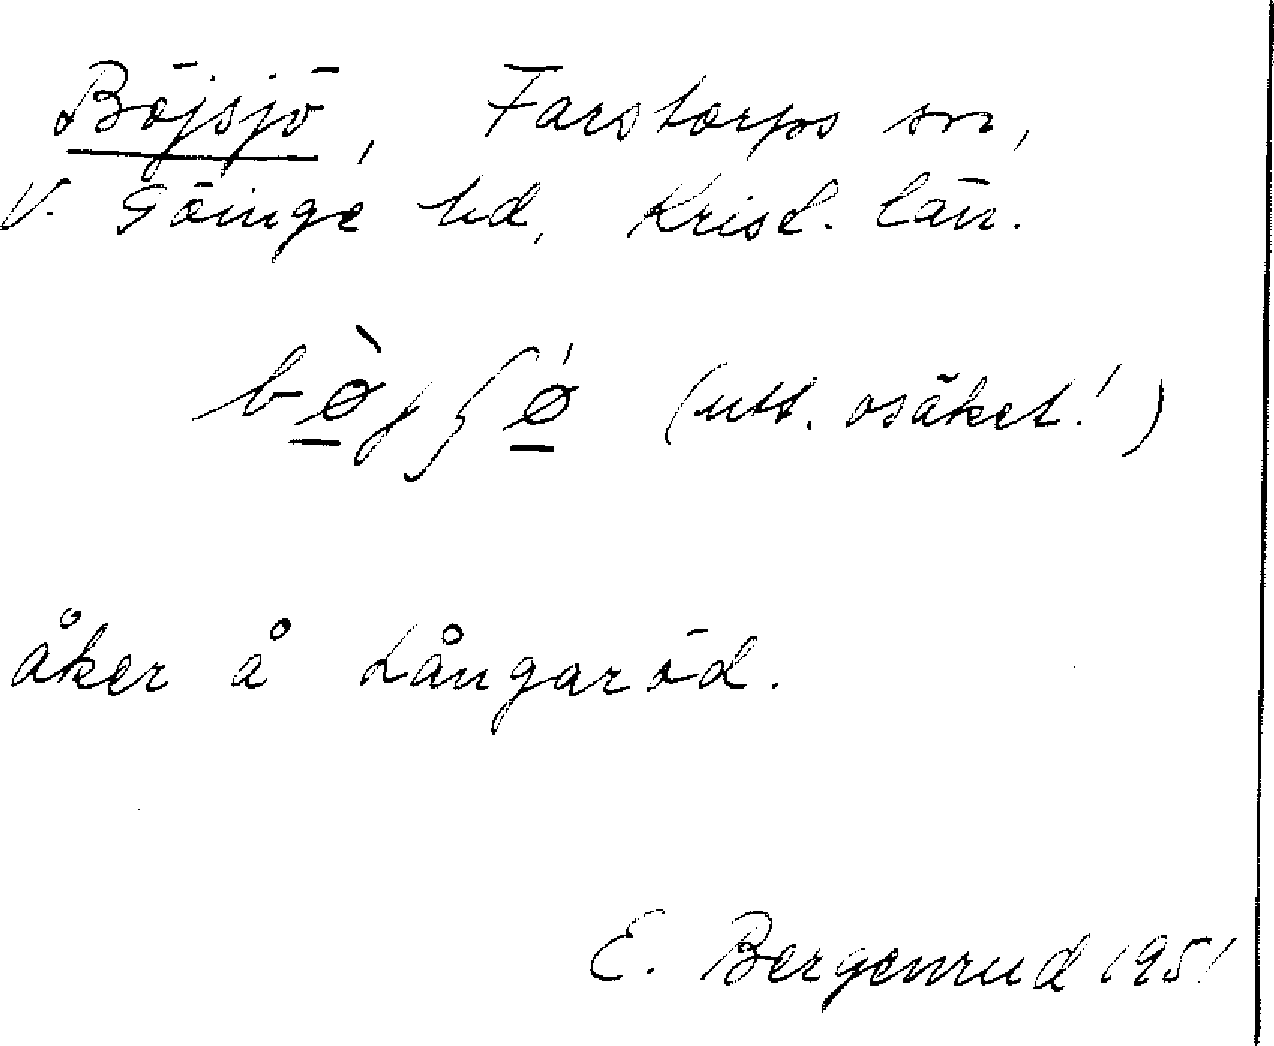 Böjsjö, Farstorps sn,
V. Göinge hd, Krist. län.
bø̠̀jʃǿ̠ (utt. osäket!)
åker å Långaröd.
E. Bergenrud 1951